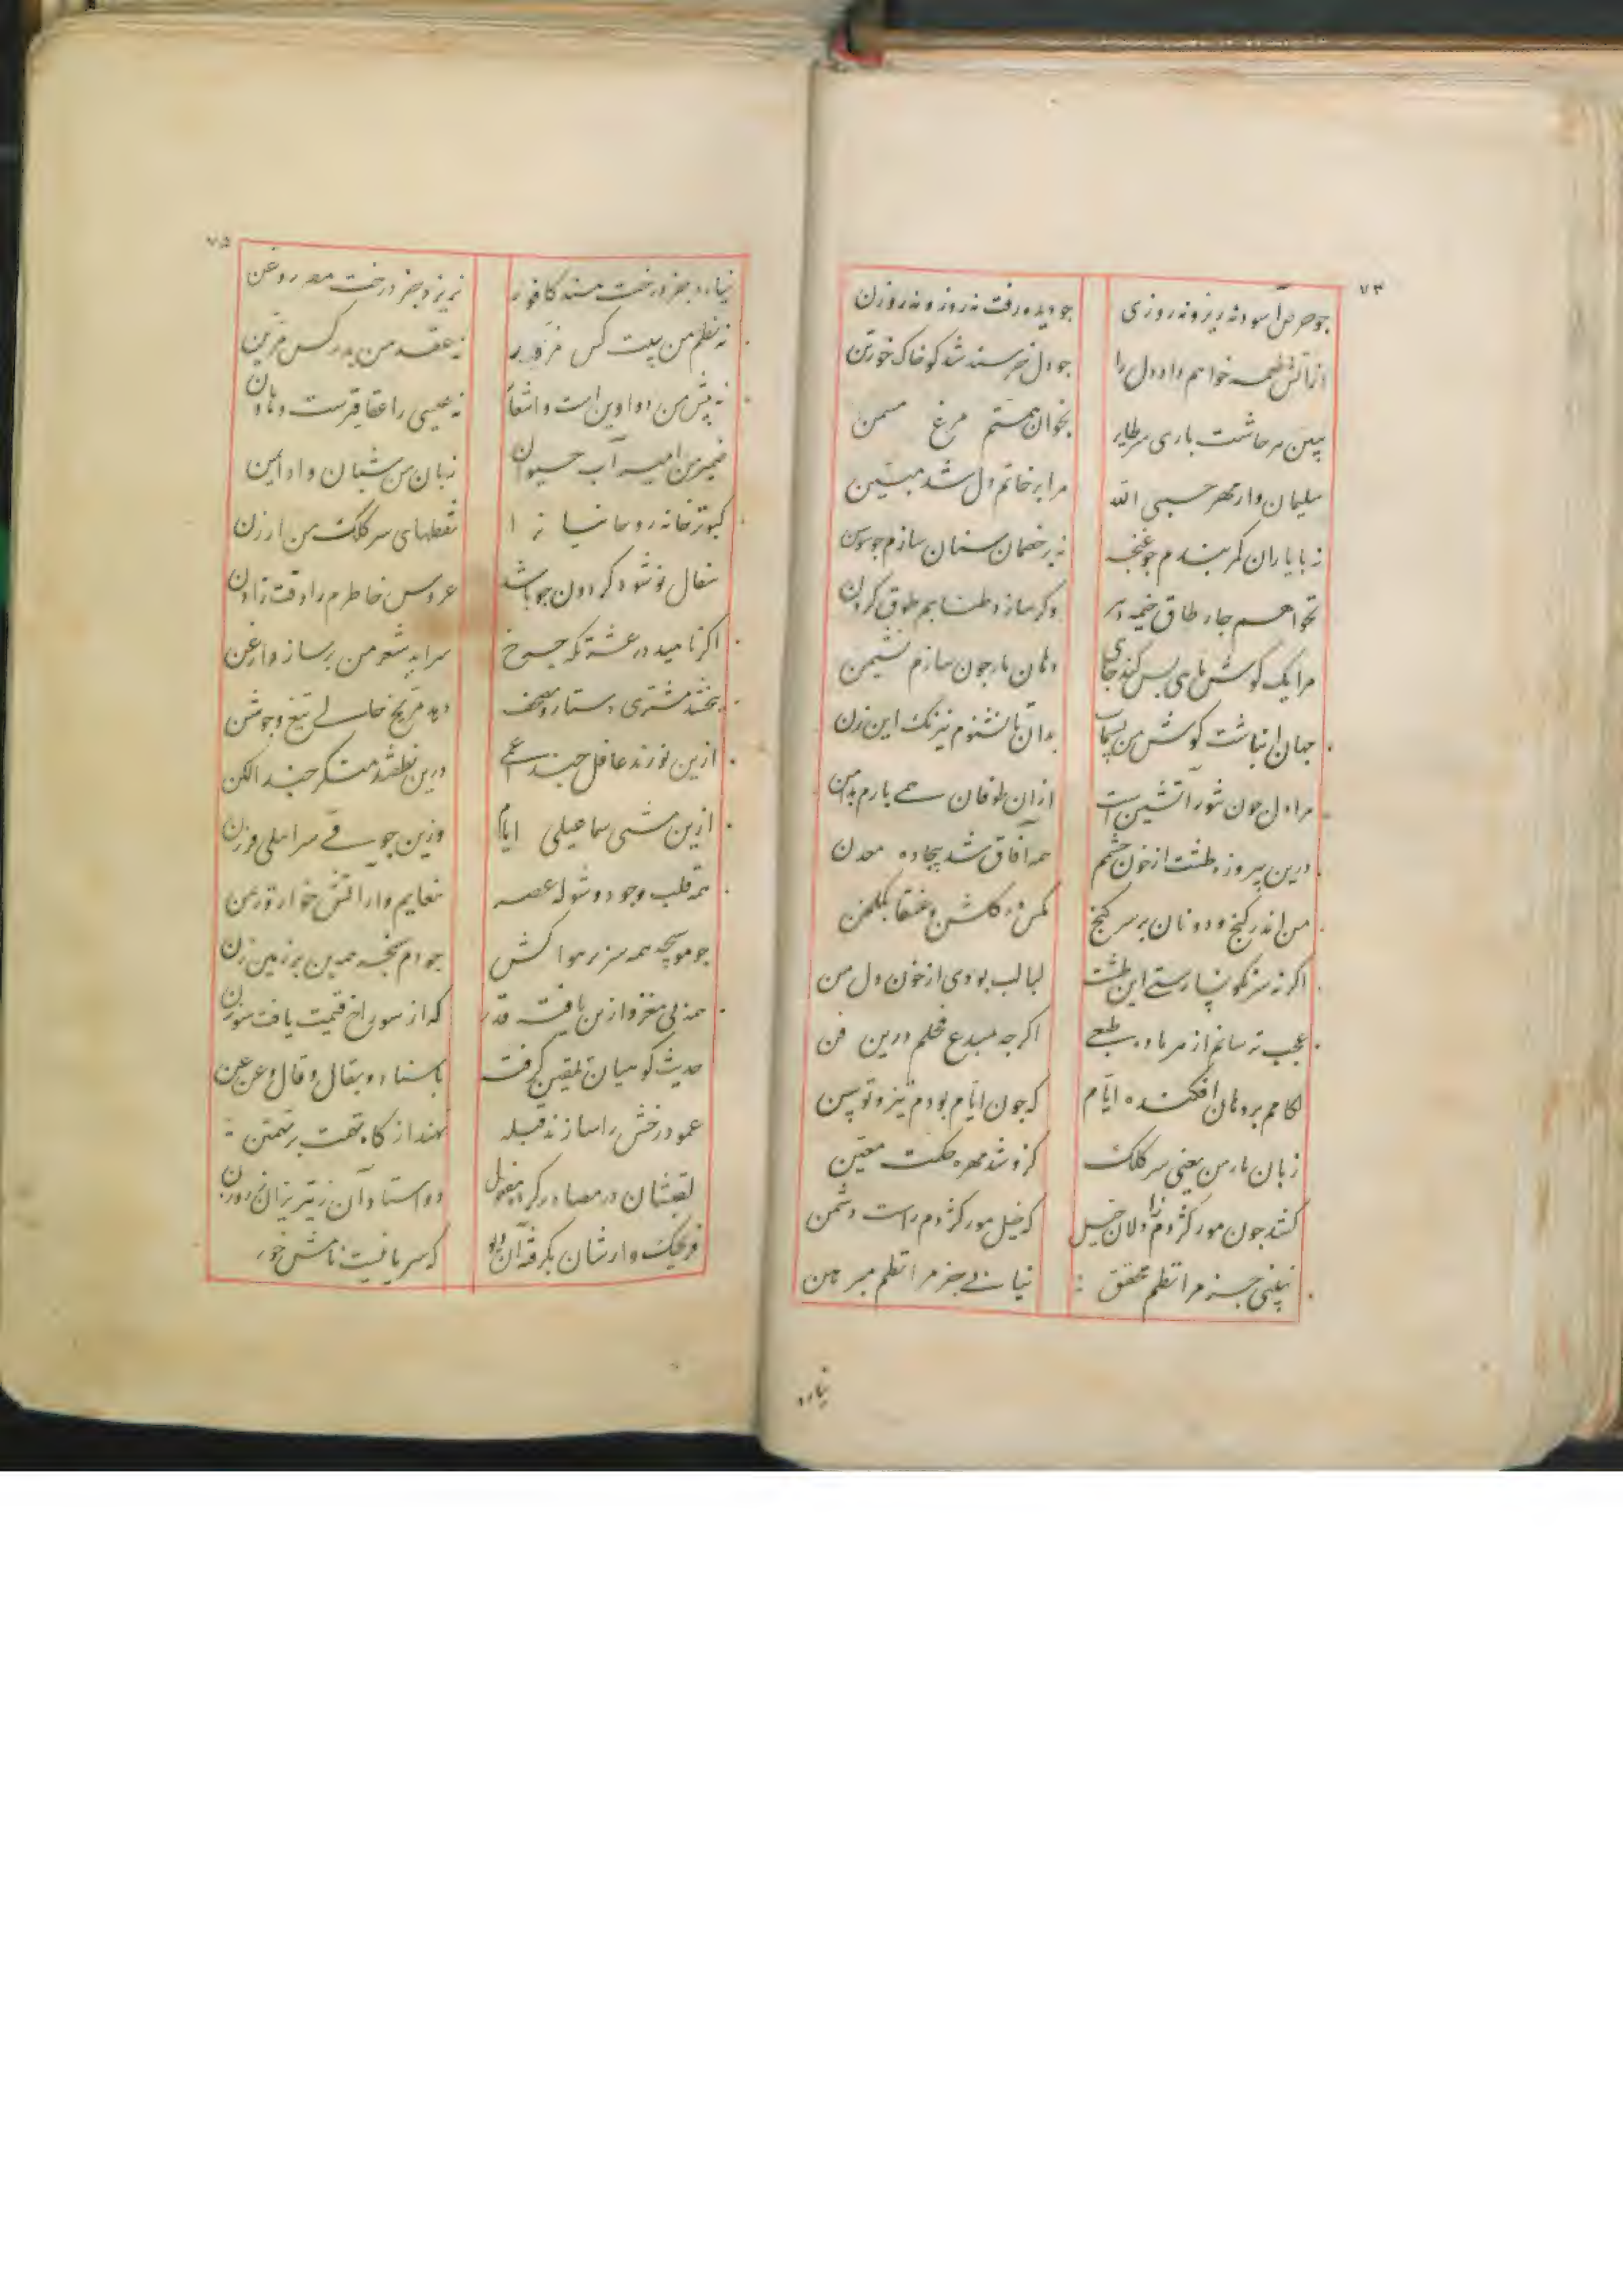 ۷۳
جو حرص آسود نه روزه نه روزی جو دیده رفت نه روز و نه روزن
از آتش طعمه خواهم داد دل را جو دل خرسند شد کو خاک خور تن
ببین هر جاشت باری سر طایر بخوان همتم مرغ مسمن
سلیمان وار مهر حسبی الله مرا بر خاتم دل شد مبین
نه با یاران کمر بندم جو غنجه نه بر خصمان سنان سازم جو سوسن
نخواهم جار طاق خیمه دهر وکر سازد طنابم طوق کردن
مرا یک کوش ماهی بس کند جای دهان مار جون سازم نشیمن
جهان انباشت کوش من بسیماب بدان تا نشنوم نیرنک این زن
مرا دل جون تنور آتشین است ازان طوفان همی بارم بدامن
درین پیروزه طشت از خون جشم همه آفاق شد بیجاده معدن
من اندر کنج و دونان بر سر کنج مکس در کلشن و عنقا بکلخن
اکر نه سرنکونسارستی این طشت لبالب بودی از خون دل من
عجب ترسانم از هر ماده طبعی اکرجه مبدع فحلم درین فن
لکامم بر دهان افکنده ایام که جون ایام بودم تیز و توسن
زبان مار من یعنی سر کلک کزو شد مهره حکمت معین
کشد جون مور کژدم را دلان خیل که خیل مور کژدم راست دشمن
نبینی جز مرا نظم محقق نیابی جز مرا نظم مبرهن
نیارد
۷۵
نیارد جز درخت هند کافور نریزد جز درخت مصر روغن
نه نظم من ببیت کس مزور نه عقد من بدر کس مزین
نه پیش من دواوین است و اشعار نه عیسی را عقاقیرست و هاون
ضمیر من امیر آب حیوان زبان من شبان واد ایمن
کبوتر خانه روحانیان را نقطهای سر کلک من ارزن
سفال نو شود کردون جو باشد عروس خاطرم را وقت زادن
اکر ناهید در عشرتکه جرخ سراید شعر من بر ساز وارغن
ببخشد مشتری دستار و مصحف دهد مریخ حالی تیغ و جوشن
ازین نورند غافل جند اعمی درین نطقند منکر جند الکن
ازین مشتی سماعیلی ایام وزین جوقی سرابیلی برزن
همه قلب وجود و شوله عصر نعایم وار آتش خوار و ریمن
جو موسیجه همه سر بر هوا کش جو دم سیجه همه دم بر زمین زن
همه بی مغز و از من یافته قدر که از سوراخ قیمت یافت سوزن
حدیث کو میان تلقین کرفته باسناد و بقال و قال و عن عن
عمود رخش را سازند قبله نهند از کاه تهمت بر تهمتن
لقبشان در مصادر کرده مفعول دو استاد آن ز تبریز آن ز زوزن
فرنجک وارشان بکرفته آن دیو که سریانیست نامش خور